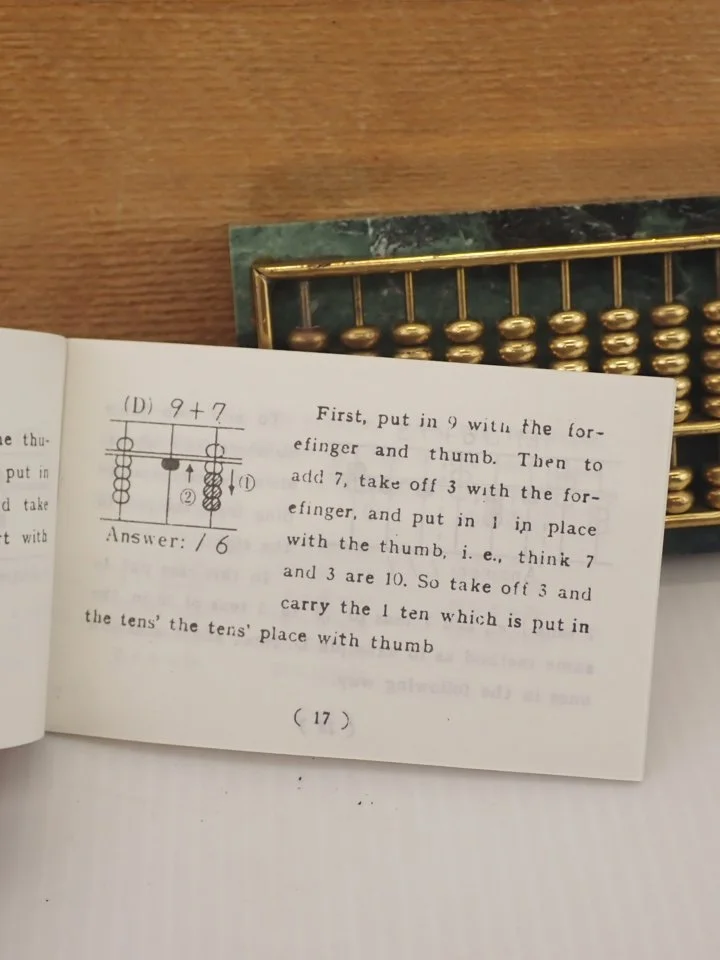 he thu-
put in
d take
t with
(D) 9+7
(1)
(2)
Answer: 16
First, put in 9 with the for-
efinger and thumb. Then to
add 7, take off 3 with the for-
efinger, and put in 1 in place
with the thumb, i. e., think 7
and 3 are 10. So take off 3 and
carry the 1 ten which is put in
the tens' the tens' place with thumb
( 17 )